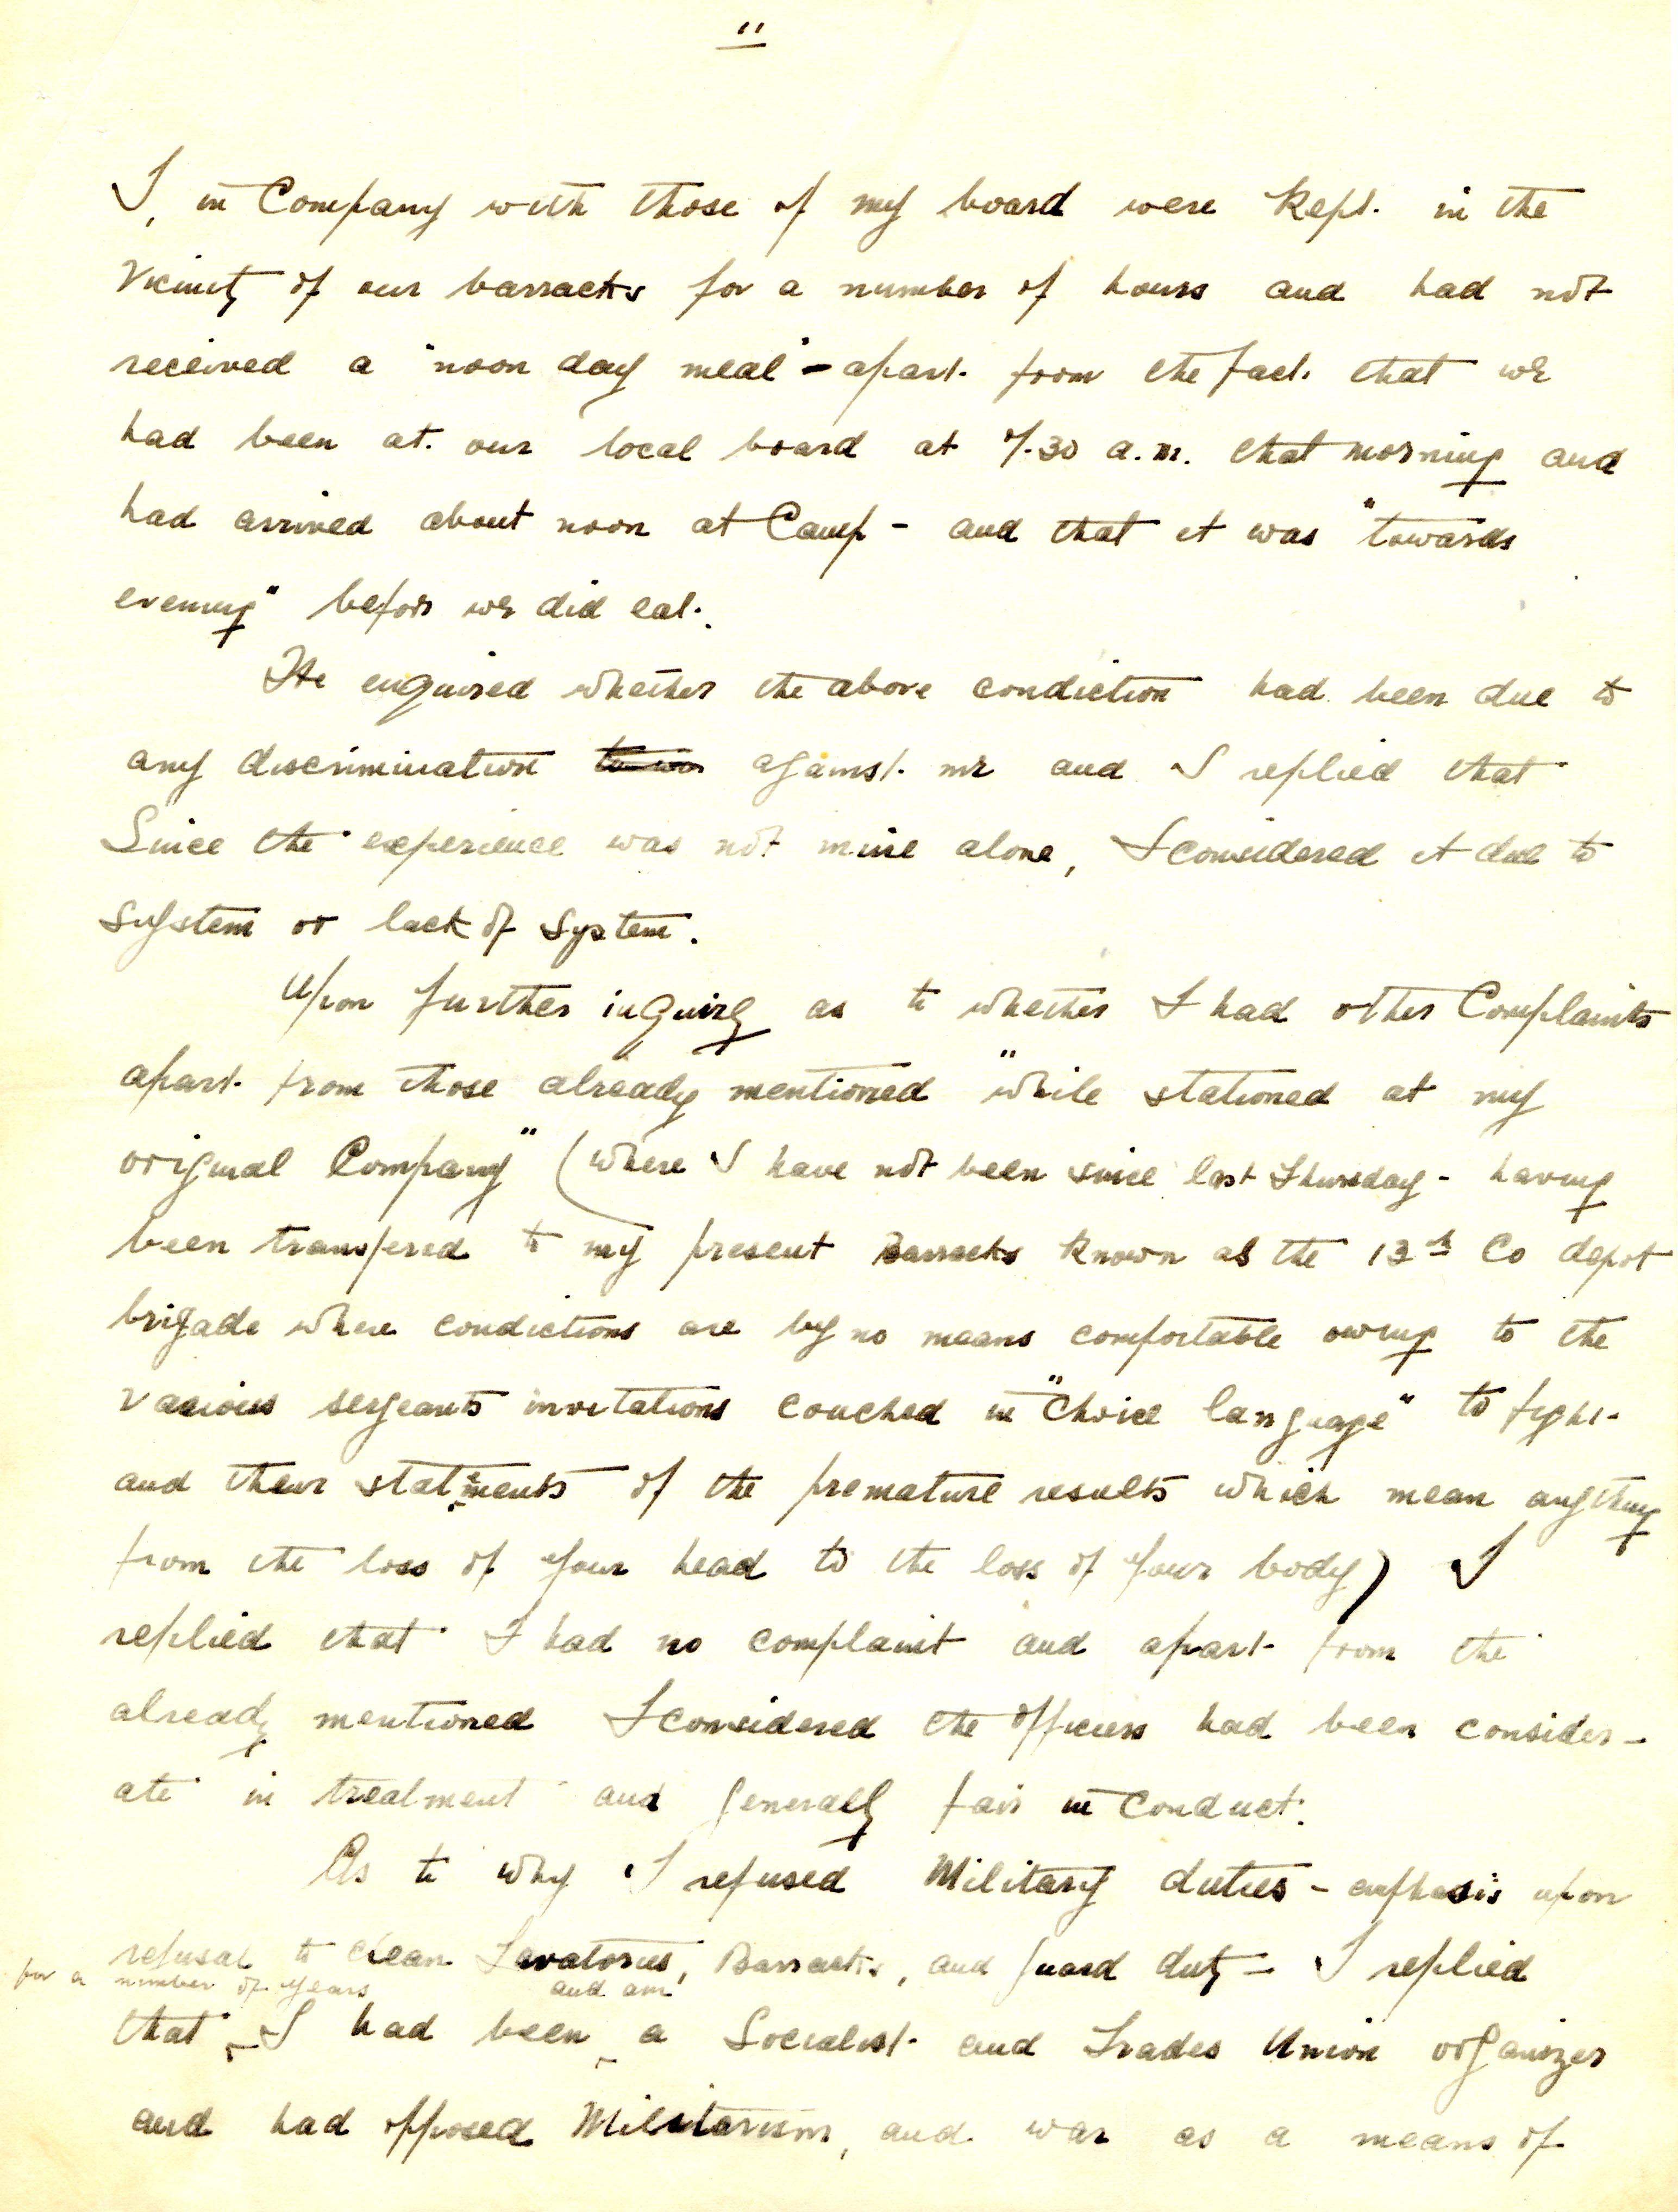 "
I, in Company with those of my board were kept in the
Vicinity of our barracks for a number of hours and had not
received a "noon day meal" - apart from the fact that we
had been at our local board at 7.30 a.m. that morning and
had arrived about noon at Camp - and that it was "towards
evening" before we did eat.
He enquired whether the above condiction had been due to
any discrimination against me and I replied that
Since the experience was not mine alone, I considered it due to
System or lack of System.
Upon further inquiry as to whether I had other Complaints
apart from those already mentioned "while stationed at my
original Company" (where I have not been since last Thursday - having
been transfered to my present Barracks known as the 13th Co depot
brigade where condictions are by no means comfortable owing to the
various sergeants invitations couched in "Choice language" to fight
and their statements of the premature results which mean anything
from the loss of your head to the loss of your body) I
replied that I had no complaint and apart from the
already mentioned I considered the officers had been consider-
ate in treatment and generally fair in Conduct.
As to why I refused Military duties - emphasis upon
refusal to clean Lavatories, Barracks, and guard duty - I replied
for a number of years and am
that I had been a Socialist and Trades Union organizer
and had opposed Militarism, and war as a means of